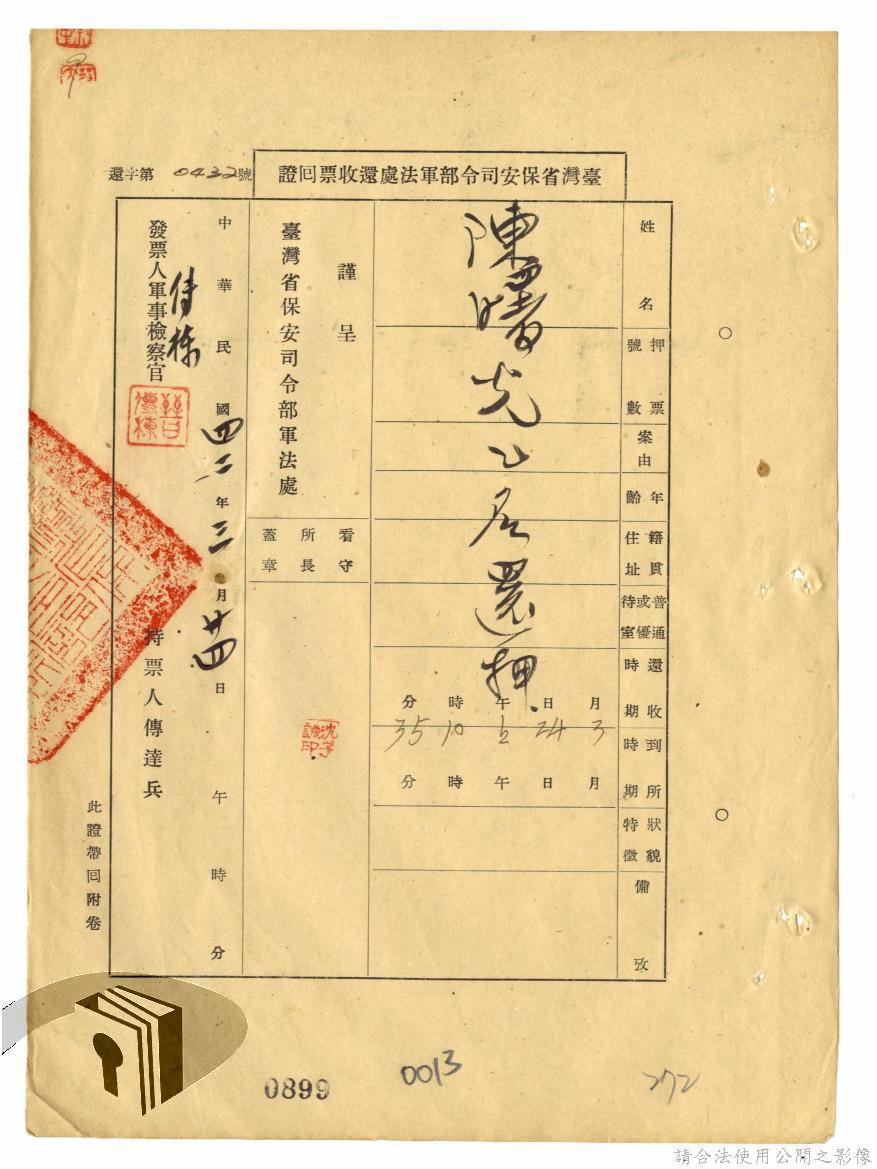 臺灣省保安司令部軍法處還收票回證
還字第0432號
姓名
陳曙光乙名還押
押票號數
案由
年齡
籍貫住址
普通或優待室
還收時期
月日午時分
3 24 上 10 35
到所時期
月日午時分
狀貌特徵
備攷
謹呈
臺灣省保安司令部軍法處
看守所長蓋章
中華民國四二年三月廿四日午時分
發票人軍事檢察官
持票人傳達兵
此證帶回附卷
0899
0013
272
請合法使用公開之影像